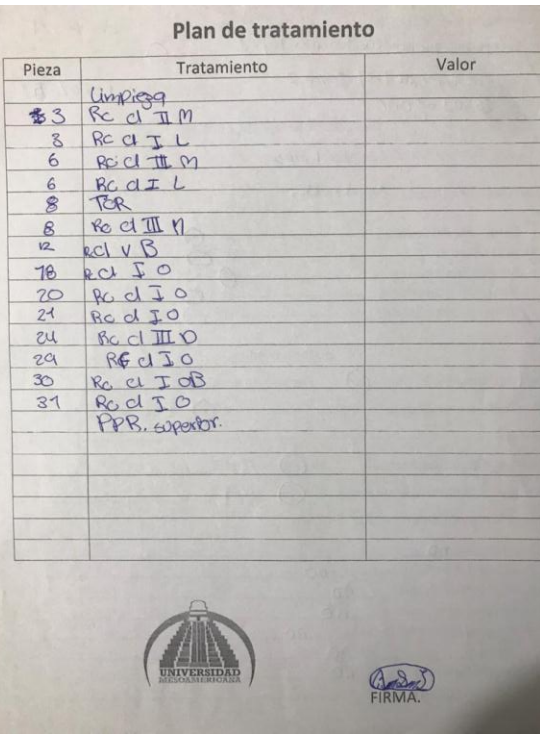 Plan de tratamiento
Pieza Tratamiento Valor
Limpieza
3 Rc cl II M
8 Rc cl I L
6 Rc cl III M
6 Rc cl I L
8 TCR
8 Rc cl III M
12 Rcl V B
18 Rcl I O
20 Rc cl I O
21 Rc cl I O
24 Rc cl III D
29 Rc cl I O
30 Rc cl I OB
31 Rc cl I O
PPR. superior.
UNIVERSIDAD
MESOAMERICANA
FIRMA.